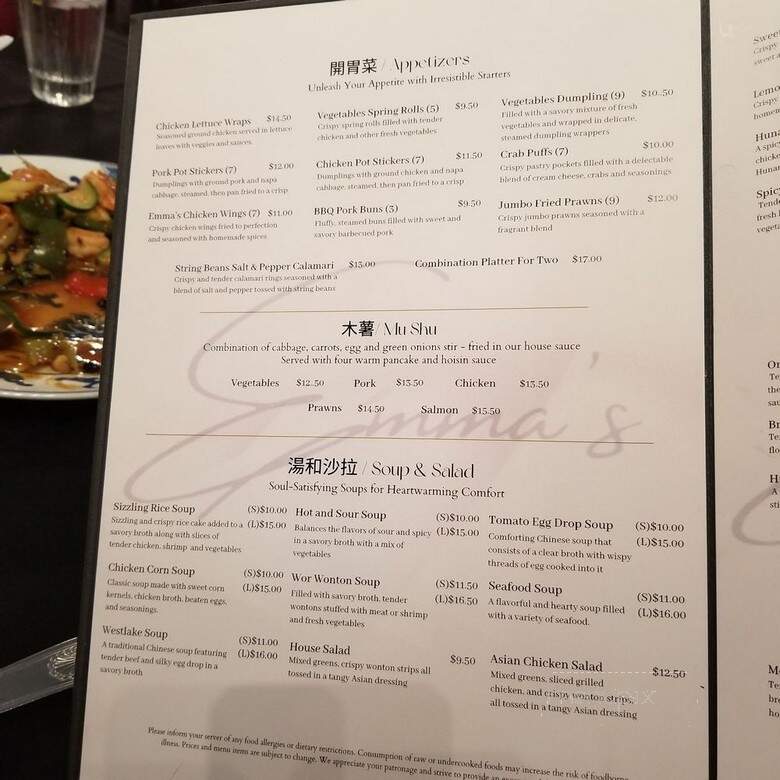 開胃菜 / Appetizers
Unleash Your Appetite with Irresistible Starters
Chicken Lettuce Wraps $14.50
Seasoned ground chicken served in lettuce
leaves with veggies and sauces.
Vegetables Spring Rolls (5) $9.50
Crispy spring rolls filled with tender
chicken and other fresh vegetables
Vegetables Dumpling (9) $10..50
Filled with a savory mixture of fresh
vegetables and wrapped in delicate,
steamed dumpling wrappers
Pork Pot Stickers (7) $12.00
Dumplings with ground pork and napa
cabbage, steamed, then pan fried to a crisp
Chicken Pot Stickers (7) $11.50
Dumplings with ground chicken and napa
cabbage, steamed, then pan fried to a crisp
Crab Puffs (7) $10.00
Crispy pastry pockets filled with a delectable
blend of cream cheese, crabs and seasonings
Emma's Chicken Wings (7) $11.00
Crispy chicken wings fried to perfection
and seasoned with homemade spices
BBQ Pork Buns (3) $9.50
Fluffy, steamed buns filled with sweet and
savory barbecued pork
Jumbo Fried Prawns (9) $12.00
Crispy jumbo prawns seasoned with a
fragrant blend
String Beans Salt & Pepper Calamari $13.00
Crispy and tender calamari rings seasoned with a
blend of salt and pepper tossed with string beans
Combination Platter For Two $17.00
木薯/ Mu Shu
Combination of cabbage, carrots, egg and green onions stir - fried in our house sauce
Served with four warm pancake and hoisin sauce
Vegetables $12..50 Pork $13.50 Chicken $13.50
Prawns $14.50 Salmon $15.50
Emma's
湯和沙拉 / Soup & Salad
Soul-Satisfying Soups for Heartwarming Comfort
Sizzling Rice Soup (S)$10.00
Sizzling and crispy rice cake added to a (L)$15.00
savory broth along with slices of
tender chicken, shrimp and vegetables
Hot and Sour Soup (S)$10.00
Balances the flavors of sour and spicy (L)$15.00
in a savory broth with a mix of
vegetables
Tomato Egg Drop Soup (S)$10.00
Comforting Chinese soup that (L)$15.00
consists of a clear broth with wispy
threads of egg cooked into it
Chicken Corn Soup (S)$10.00
Classic soup made with sweet corn (L)$15.00
kernels, chicken broth, beaten eggs,
and seasonings.
Wor Wonton Soup (S)$11.50
Filled with savory broth, tender (L)$16.50
wontons stuffed with meat or shrimp
and fresh vegetables
Seafood Soup (S)$11.00
A flavorful and hearty soup filled (L)$16.00
with a variety of seafood.
Westlake Soup (S)$11.00
A traditional Chinese soup featuring (L)$16.00
tender beef and silky egg drop in a
savory broth
House Salad $9.50
Mixed greens, crispy wonton strips all
tossed in a tangy Asian dressing
Asian Chicken Salad $12.50
Mixed greens, sliced grilled
chicken, and crispy wonton strips,
all tossed in a tangy Asian dressing
Please inform your server of any food allergies or dietary restrictions. Consumption of raw or undercooked foods may increase the risk of
illness. Prices and menu items are subject to change. We appreciate your patronage and strive to provide an